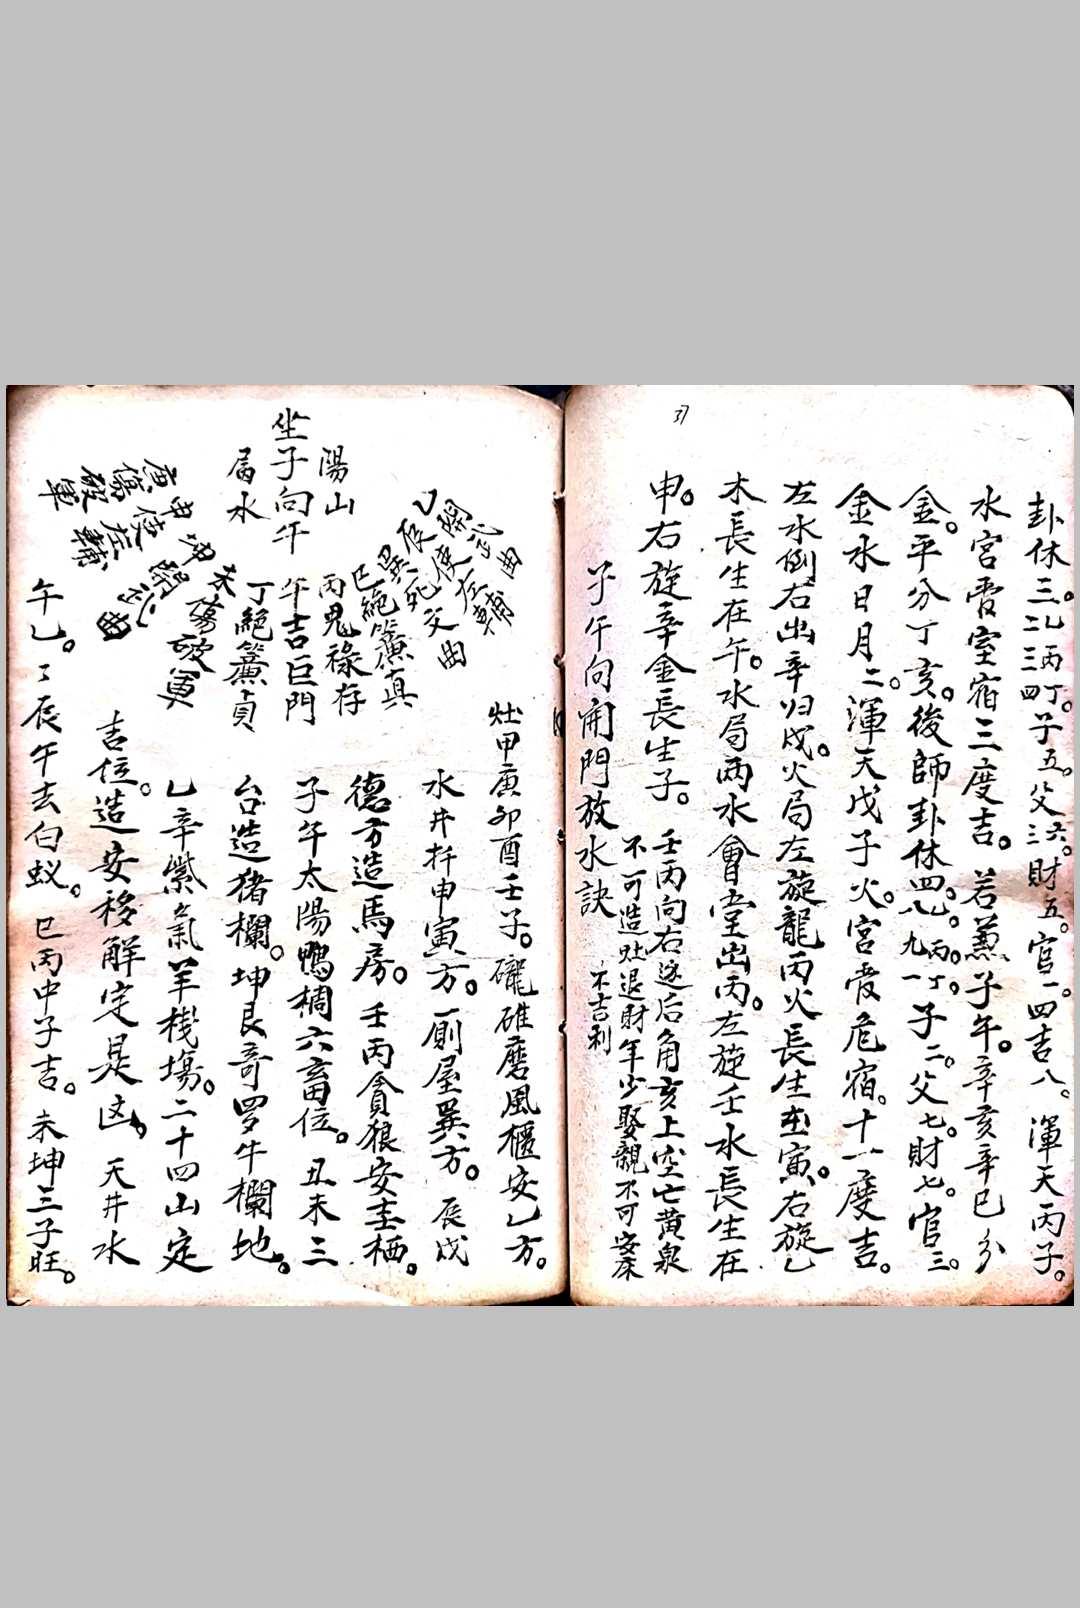 37
卦休三。乙丙丁。子五。父六。財五。官一四吉八。渾天丙子。
二三四 三
水宮虛室宿三度吉。若兼子午。辛亥辛巳分
金。平分丁亥。後師卦休四。乙丙丁。子二。父七。財七。官三。
八九一
金水日月二。渾天戊子火。宮虛危宿。十一度吉。
左水倒右出辛归戌。火局左旋龍丙火長生在寅。右旋乙
木長生在午。水局兩水會堂出丙。左旋壬水長生在
申。右旋辛金長生子。
壬丙向右逆后角亥上空亡黄泉
不可造灶退財年少娶親不可安床
不吉利
子午向開門放水訣
坐子向午
陽山
屬水
乙開武曲
辰使左輔
巽死文曲
巳絕簾真
丙鬼祿存
午吉巨門
丁絕簾貞
未傷破軍
坤開武曲
申使左輔
庚傷破軍
灶甲庚卯酉壬子。礲碓磨風櫃安乙方。
水井扦申寅方。厠屋巽方。辰戌
德方造馬房。壬丙貪狼安圭栖。
子午太陽鴨椆六畜位。丑未三
台造猪欄。坤艮奇罗牛欄地。
乙辛紫氣羊棧塲。二十四山定
吉位。造安移解定是凶。天井水
午乙。丁辰午去白蚁。巳丙中子吉。未坤三子旺。